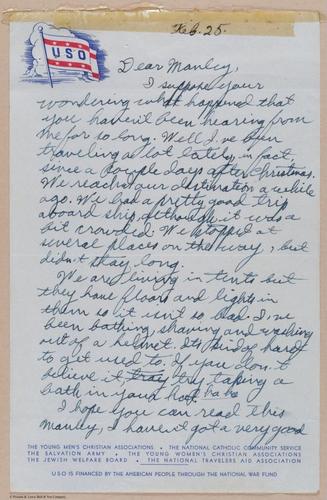 USO
Feb. 25.
Dear Manley,
I suppose your
wondering what happened that
you haven't been hearing from
me for so long. Well I've been
traveling a lot lately, in fact,
since a couple days after Christmas.
We reached our destination a while
ago. We had a pretty good trip
aboard ship, although it was a
bit crowded. We stopped at
several places on the way, but
didn't stay long.
We are living in tents but
they have floors and lights in
them so it isn't so bad. I've
been bathing, shaving and washing
out of a helmet. Its kind of hard
to get used to. If you don't
believe it, try taking a
bath in your hat. ha ha
I hope you can read this
Manley, I haven't got a very good
THE YOUNG MEN'S CHRISTIAN ASSOCIATIONS • THE NATIONAL CATHOLIC COMMUNITY SERVICE
THE SALVATION ARMY • THE YOUNG WOMEN'S CHRISTIAN ASSOCIATIONS
THE JEWISH WELFARE BOARD • THE NATIONAL TRAVELERS AID ASSOCIATION
USO IS FINANCED BY THE AMERICAN PEOPLE THROUGH THE NATIONAL WAR FUND